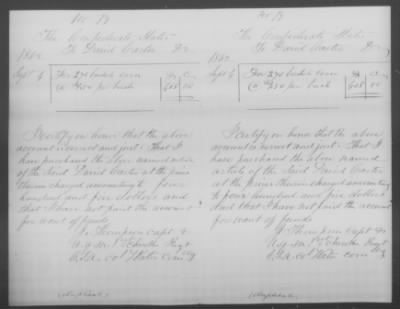 No 19
The Confederate States
To David Carter Dr
1862
Sept 6 For 270 bushels corn
@ $1.50 per bush 405 00
I certify on honor that the above
account is correct and just: That I
have purchased the above named article
of the said David Carter at the price
therein charged amounting to four
hundred and five dollars and
that I have not paid the account
for want of funds
J. Thompson Capt &
(Duplicate)
No 19
The Confederate States
To David Carter Dr
1862
Sept 6 For 270 bushels corn
@ $1.50 per bush 405 00
I certify on honor that the above
account is correct and just: That I
have purchased the above named
article of the said David Carter
at the price therein charged amounting
to four hundred and five dollars
and that I have not paid the account
for want of funds
J. Thompson Capt &
(Duplicate)